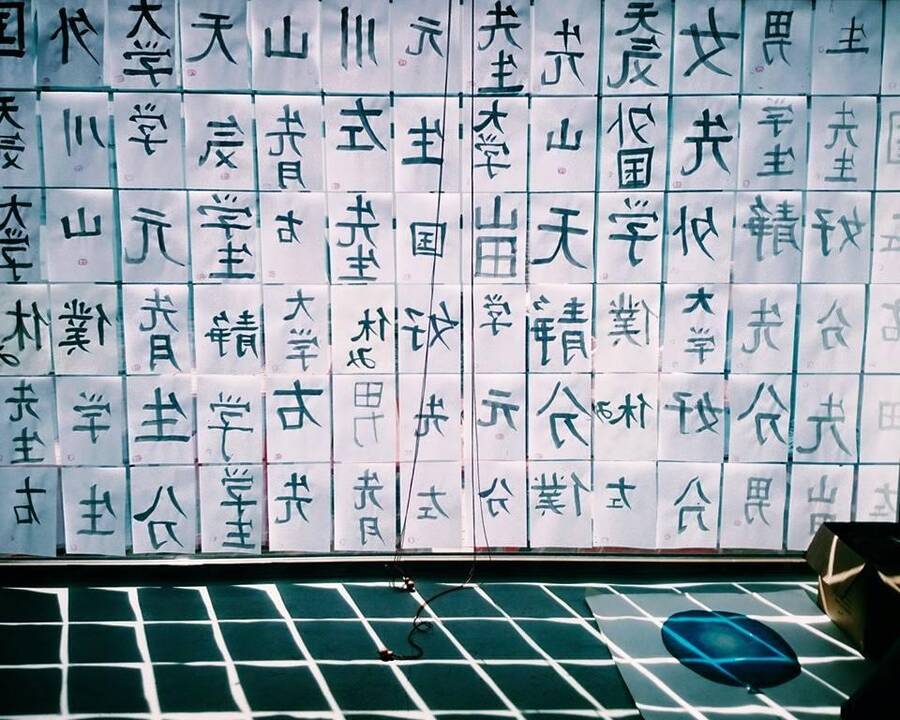 国 外 大学 天 山 川 元 先生 先 天気 女 男 生
天気 川 学 気 先月 左 生 大学 山 外国 先 学生 先生 国
大学 山 元 学生 右 先生 国 山田 天 学 外 静 好 左
休み 僕 先月 静 大学 休み 好 学 静 僕 大学 先 分
先生 学 生 学 右 男 先 元 分 休み 好 分 先
右 生 分 学生 先 先月 左 分 僕 左 分 男 山田 左